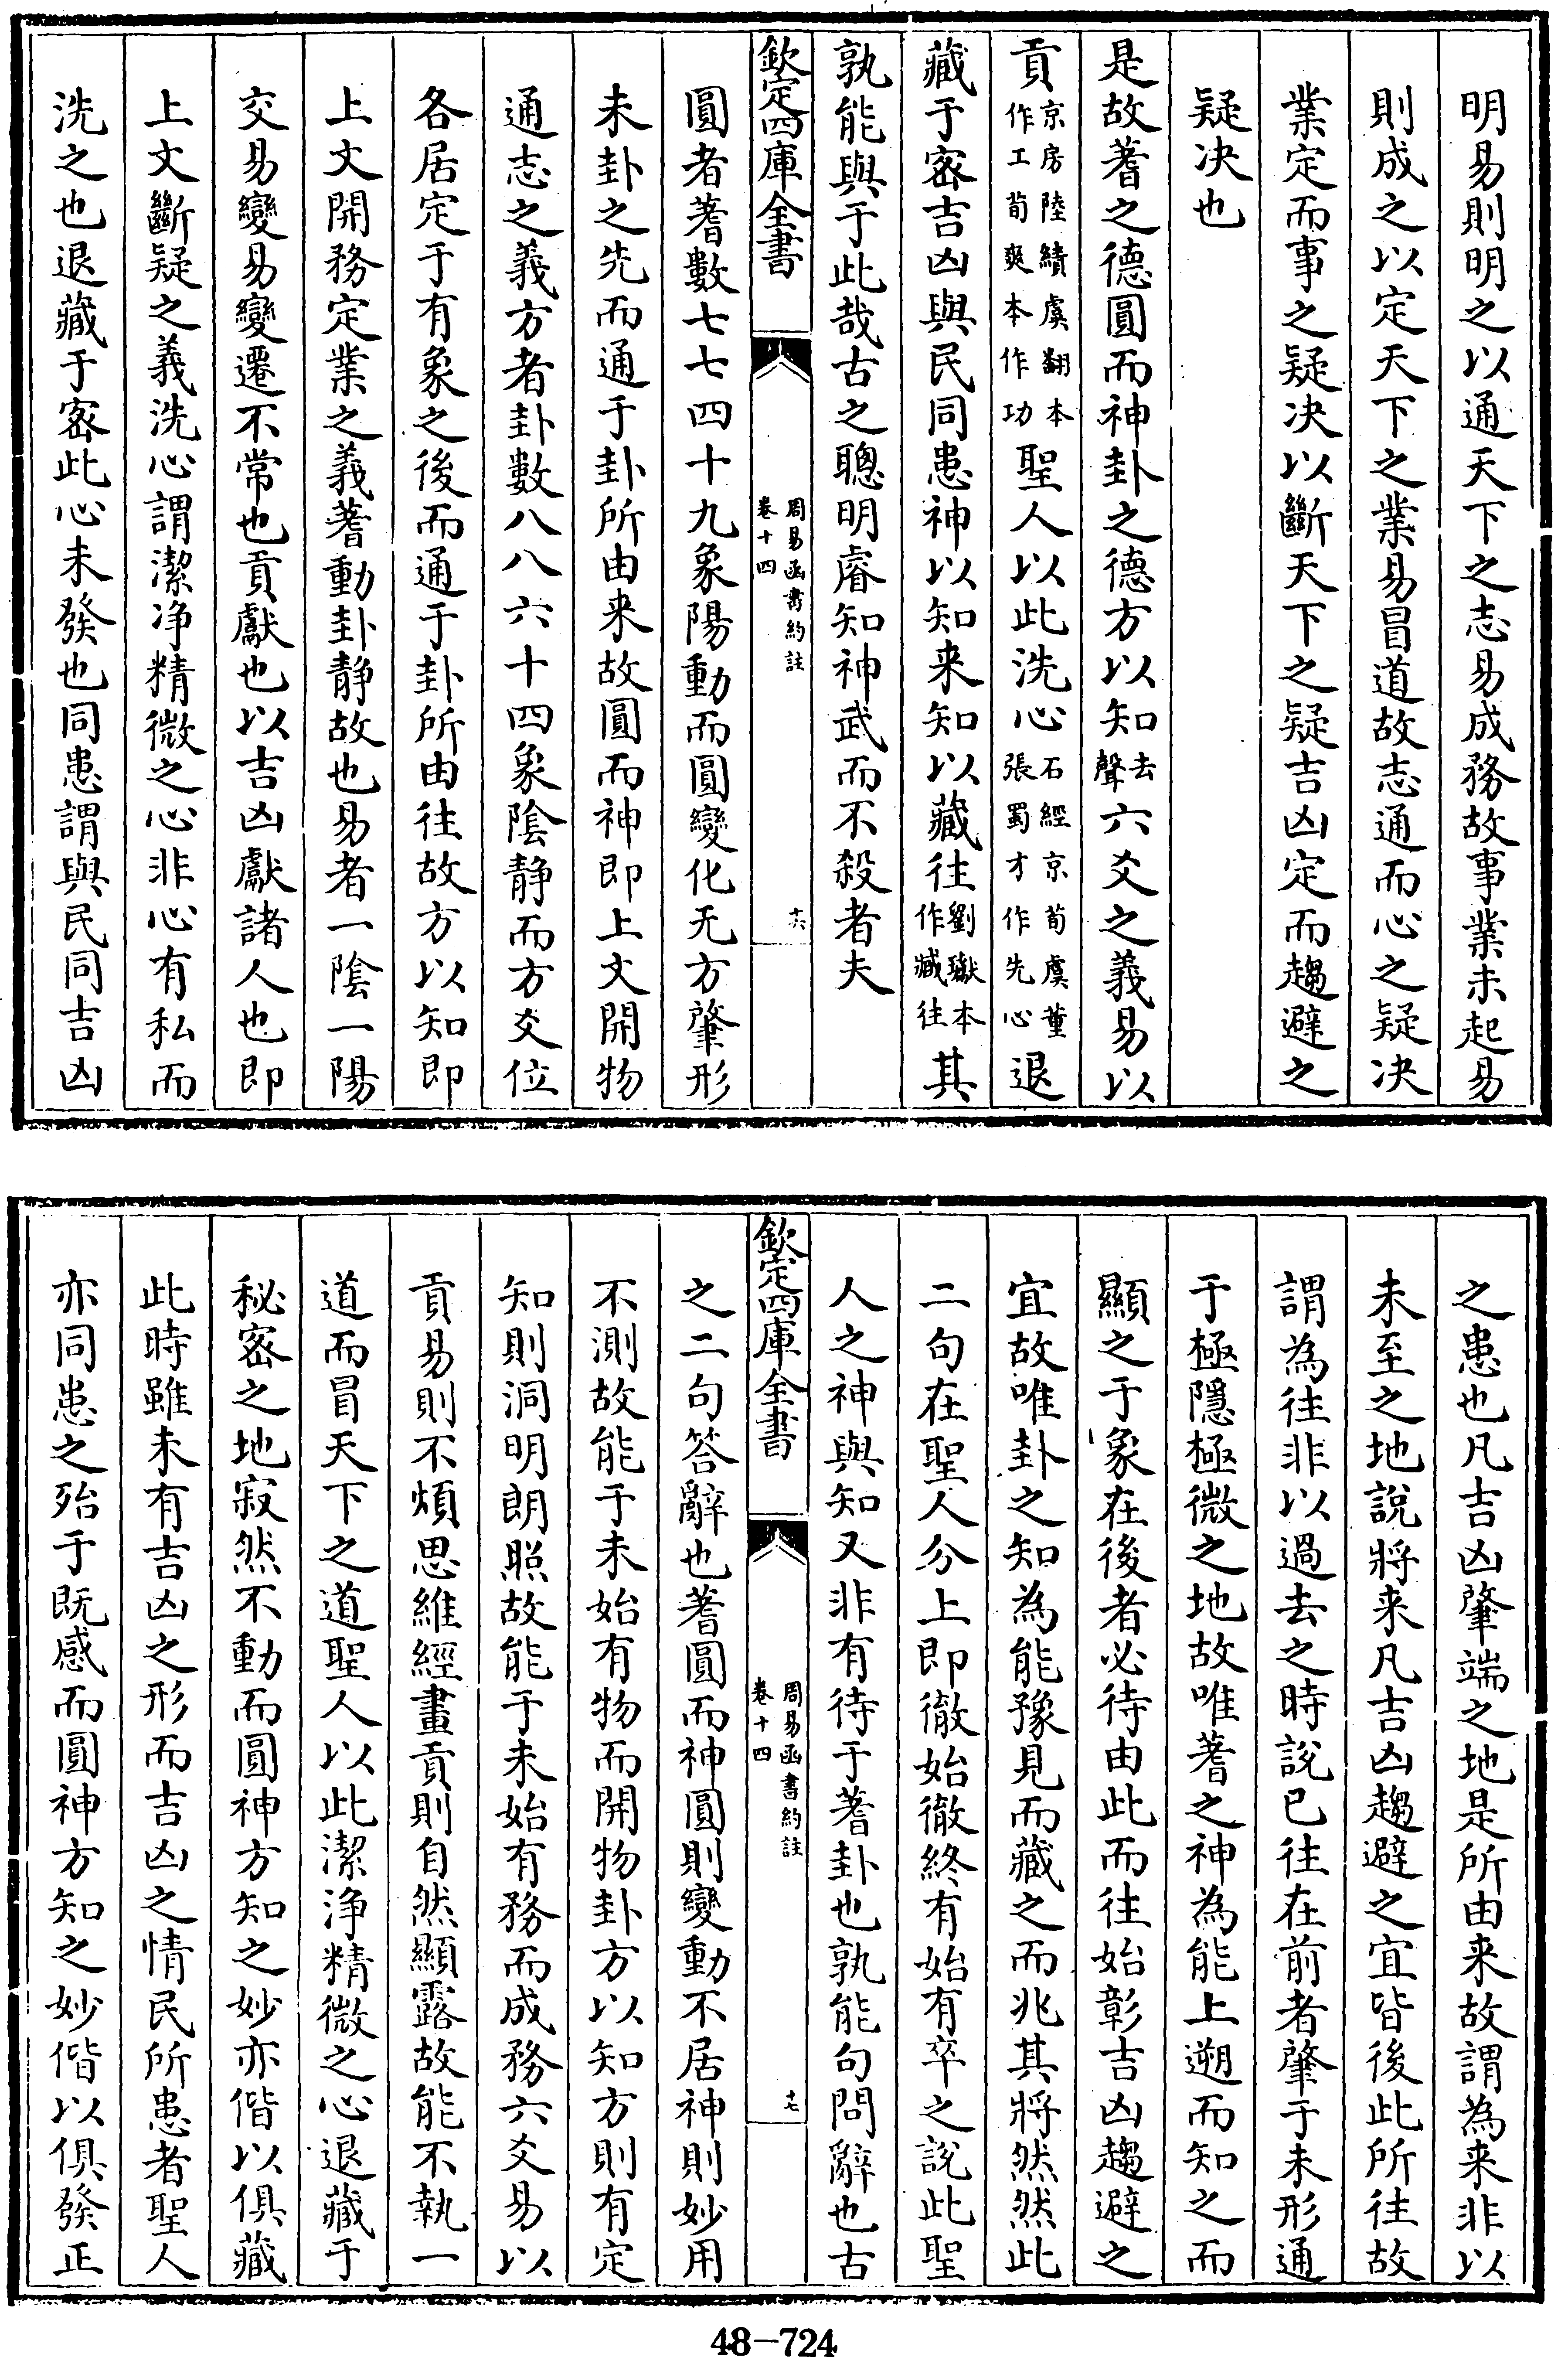 明易則明之以通天下之志易成務故事業未起易
則成之以定天下之業易冒道故志通而心之疑决
業定而事之疑决以斷天下之疑吉凶定而趨避之
疑决也
是故蓍之德圓而神卦之德方以知去聲六爻之義易以
貢京房陸績虞翻本作工荀爽本作功聖人以此洗心石經京荀虞董張蜀才作先心退
藏于宻吉凶與民同患神以知来知以藏往劉瓛本作臧往其
孰能與于此哉古之聰明睿知神武而不殺者夫
欽定四庫全書
周易函書約註
卷十四
十六
圓者蓍數七七四十九象陽動而圓變化无方肇形
未卦之先而通于卦所由来故圓而神即上文開物
通志之義方者卦數八八六十四象隂静而方爻位
各居定于有象之後而通于卦所由往故方以知即
上文開務定業之義蓍動卦静故也易者一隂一陽
交易變易變遷不常也貢獻也以吉凶獻諸人也即
上文斷疑之義洗心謂潔净精微之心非心有私而
洗之也退藏于宻此心未發也同患謂與民同吉凶
之患也凡吉凶肇端之地是所由来故謂為来非以
未至之地說將来凡吉凶趨避之宜皆後此所往故
謂為往非以過去之時說已往在前者肇于未形通
于極隱極微之地故唯蓍之神為能上遡而知之而
顯之于象在後者必待由此而往始彰吉凶趨避之
宜故唯卦之知為能豫見而藏之而兆其將然然此
二句在聖人分上即徹始徹終有始有卒之說此聖
人之神與知又非有待于蓍卦也孰能句問辭也古
欽定四庫全書
周易函書約註
卷十四
十七
之二句答辭也蓍圓而神圓則變動不居神則妙用
不測故能于未始有物而開物卦方以知方則有定
知則洞明朗照故能于未始有務而成務六爻易以
貢易則不煩思維經畫貢則自然顯露故能不執一
道而冒天下之道聖人以此潔浄精微之心退藏于
秘宻之地寂然不動而圓神方知之妙亦偕以俱藏
此時雖未有吉凶之形而吉凶之情民所患者聖人
亦同患之殆于既感而圓神方知之妙偕以俱發正
48-724